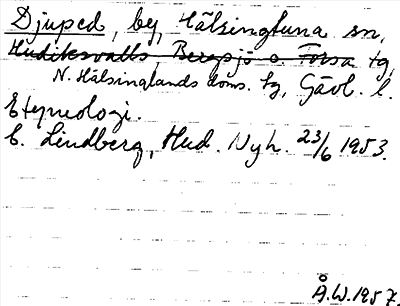 Djuped, by, Hälsingtuna sn,
Hudiksvalls, Bergsjö o. Forsa tg,
N. Hälsinglands doms. tg, Gävl. l.
Etymologi.
E. Lindberg, Hud. Nyh. 23/6 1953.
Å.W.1957.